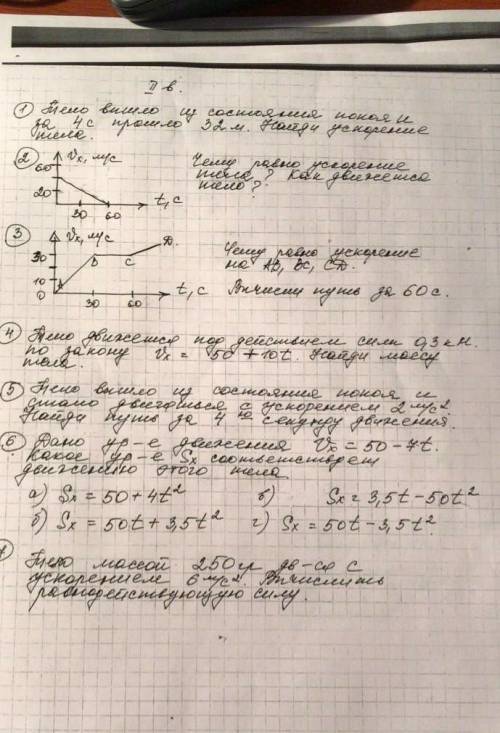 II в.
① Тело вышло из состояния покоя и
за 4 с прошло 32 м. Найди ускорение
тела.
② Vx, м/с
60
20
30 60 t, c
Чему равно ускорение
тела? Как движется
тело?
③ Vx, м/с
30
10
0
A B C D.
30 60 t, c
Чему равно ускорение
на AB, BC, CD.
Вычисли путь за 60 с.
④ Тело движется под действием силы 0,3 кН.
по закону Vx = 50 + 10t. Найди массу
тела.
⑤ Тело вышло из состояния покоя и
стало двигаться с ускорением 2 м/с².
Найди путь за 4ю секунду движения.
⑥ Дано ур-е движения Vx = 50 - 7t.
Какое ур-е Sx соответствует
движению этого тела
а) Sx = 50 + 4t² в) Sx = 3,5t - 50t²
б) Sx = 50t + 3,5t² г) Sx = 50t - 3,5t².
Тело массой 250 гр дв-ся с
ускорением 6 м/с². Вычислить
равнодействующую силу.